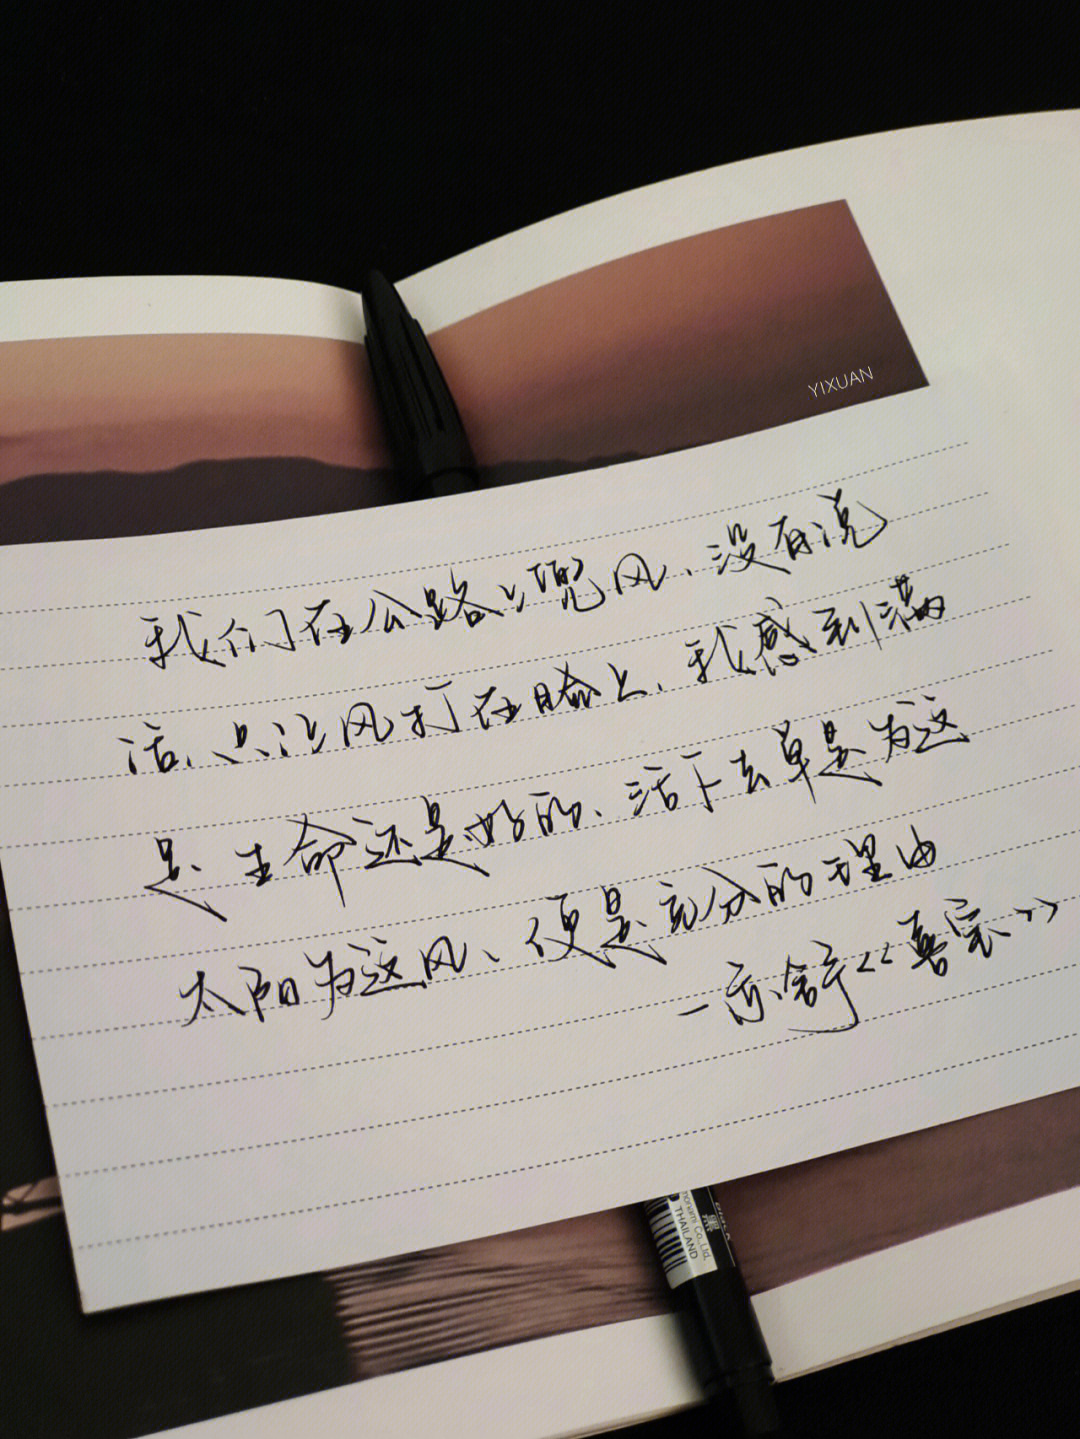 YIXUAN
我们在公路上兜风、没有说
话、只让风打在脸上、我感到满
足、生命还是好的、活下去单是为这
太阳为这风、便是充分的理由
—亦舒《喜宝》
THAILAND